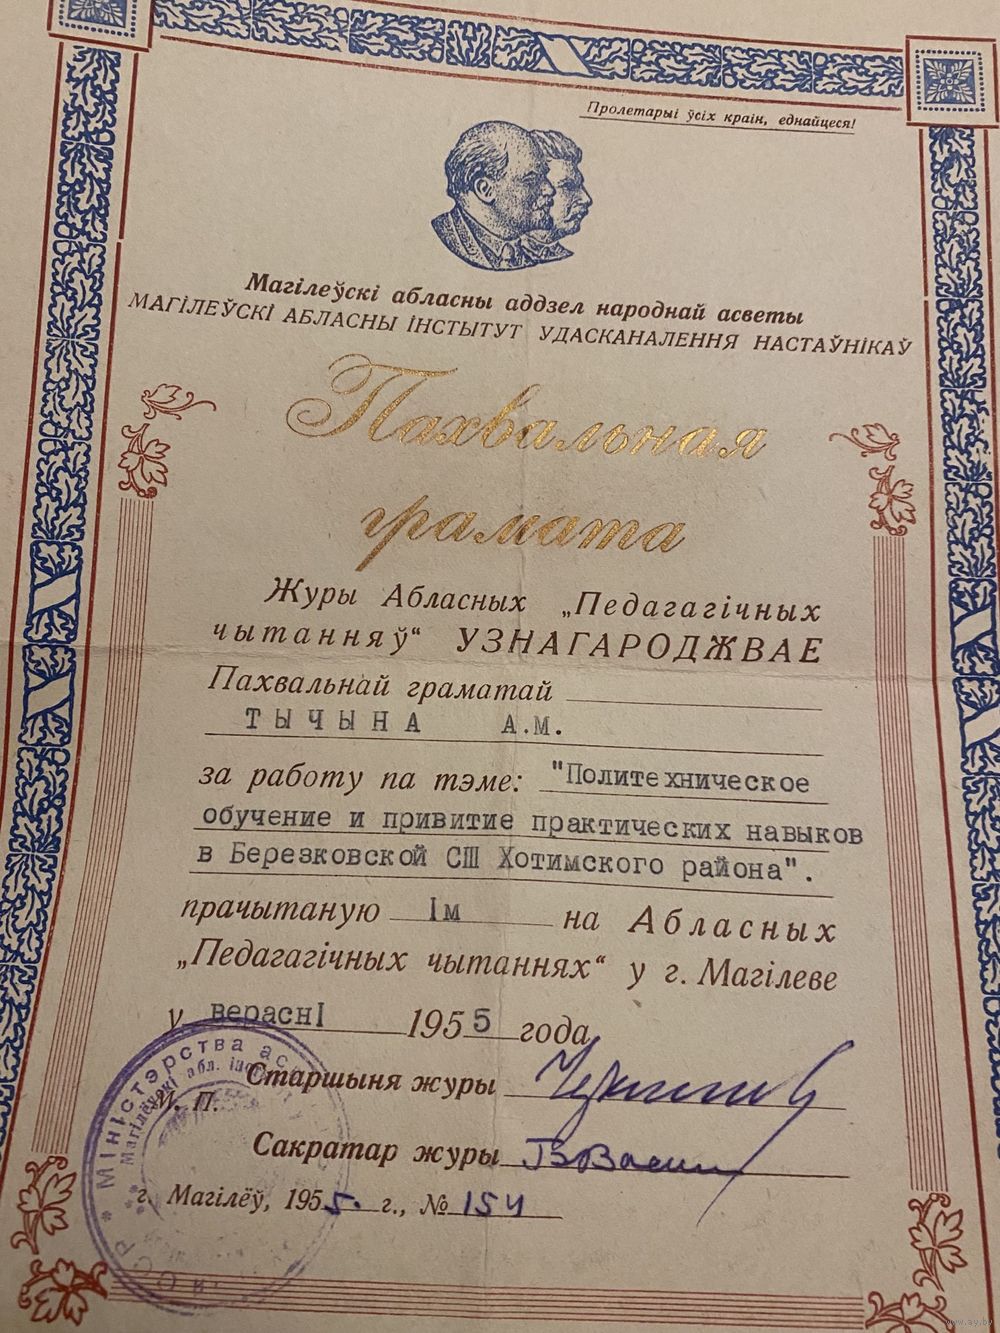 Пролетарыі ўсіх краін, еднайцеся!
Магілеўскі абласны аддзел народнай асветы
МАГІЛЕЎСКІ АБЛАСНЫ ІНСТЫТУТ УДАСКАНАЛЕННЯ НАСТАЎНІКАЎ
Пахвальная
грамата
Журы Абласных „Педагагічных
чытанняў“ УЗНАГАРОДЖВАЕ
Пахвальнай граматай
ТЫЧЫНА А.М.
за работу па тэме: "Политехническое
обучение и привитие практических навыков
в Березковской СШ Хотимского района".
прачытаную Ім на Абласных
„Педагагічных чытаннях“ у г. Магілеве
у верасні 1955 года
Старшыня журы
М. П.
Сакратар журы
г. Магілёў, 1955. г., № 154
Міністэрства
Магілеўскі абл.
www.ay.by